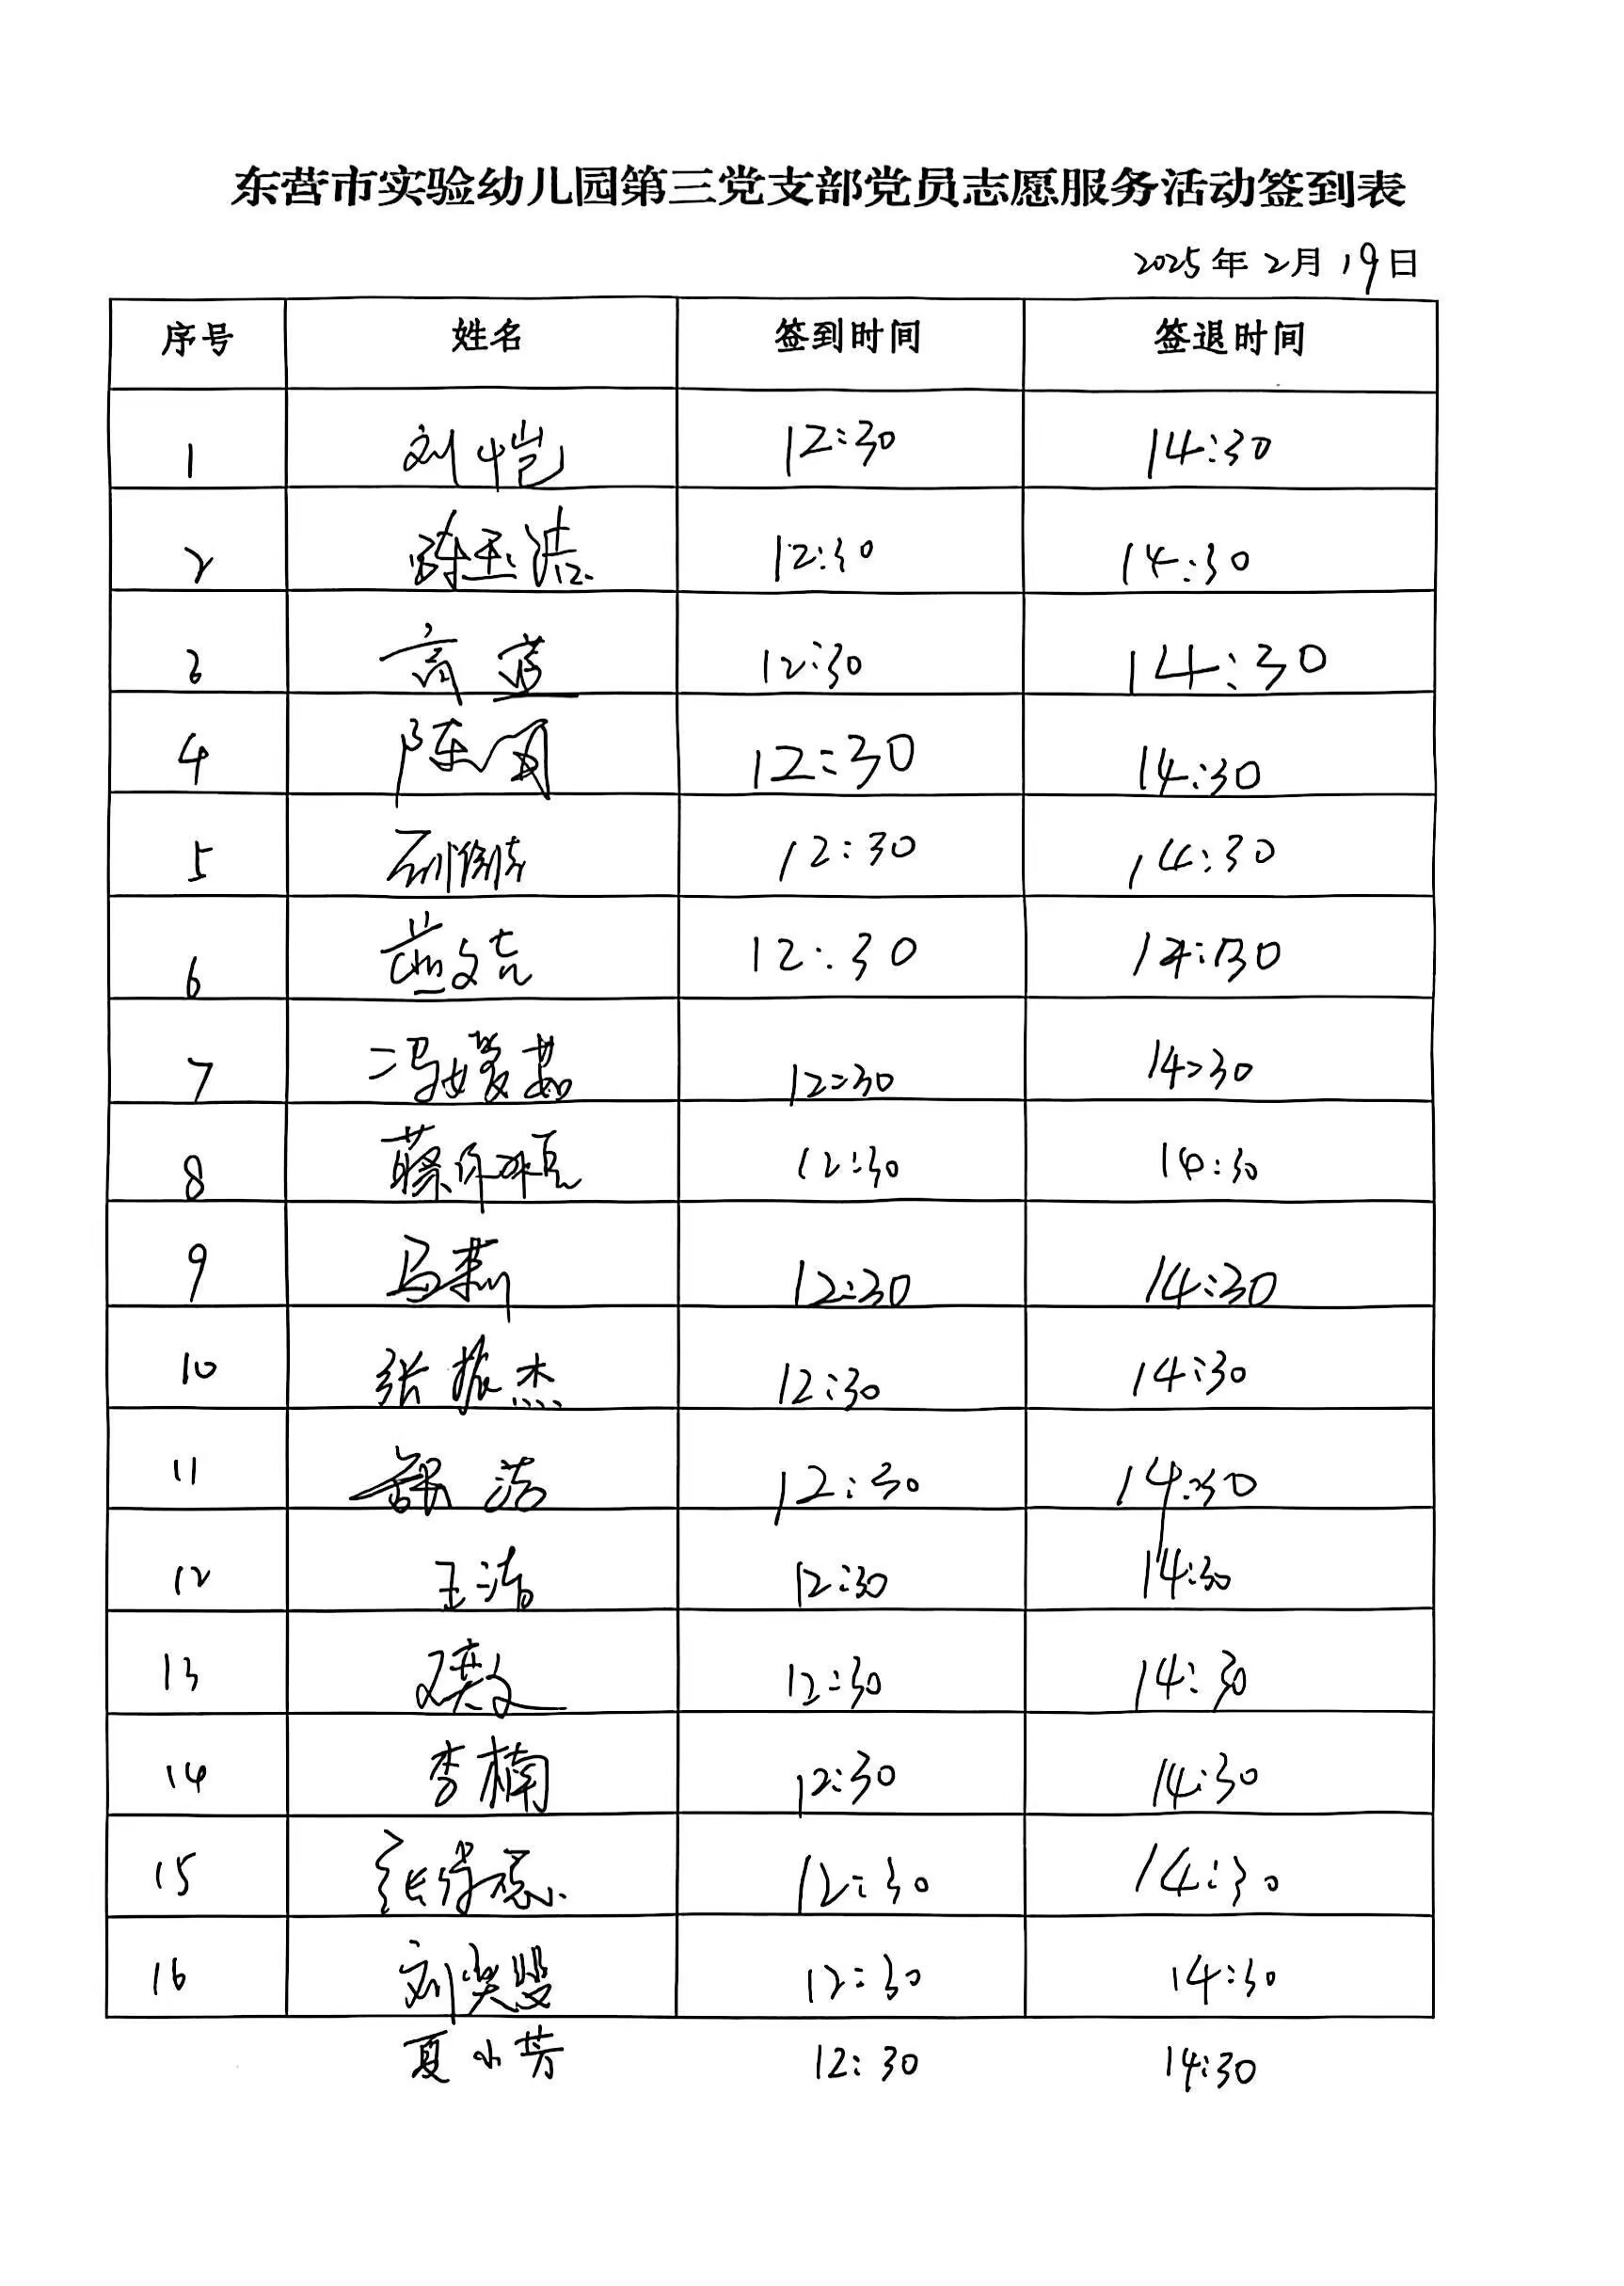 东营市实验幼儿园第三党支部党员志愿服务活动签到表
2025年2月19日
序号 姓名 签到时间 签退时间
1 刘恺 12:30 14:30
2 陈玉洁 12:30 14:30
3 高 12:30 14:30
4 陈 12:30 14:30
5 12:30 14:30
6 12:30 14:30
7 冯媛茹 12:30 14:30
8 12:30 14:30
9 马莉 12:30 14:30
10 张振杰 12:30 14:30
11 洁 12:30 14:30
12 王洁 12:30 14:30
13 12:30 14:30
14 李楠 12:30 14:30
15 张 12:30 14:30
16 刘 12:30 14:30
夏小芳 12:30 14:30